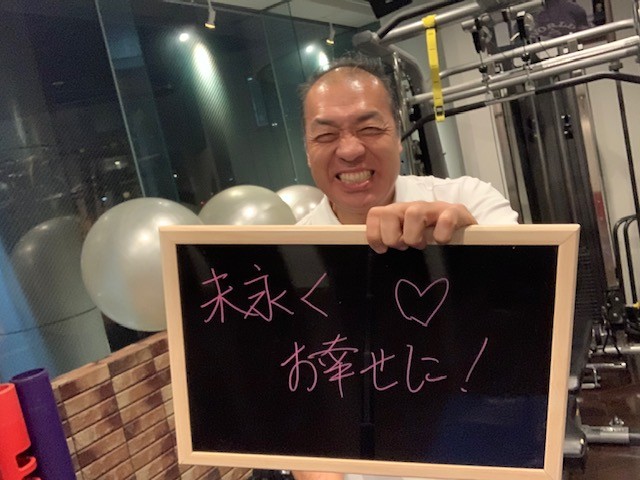 末永く ♡
お幸せに!